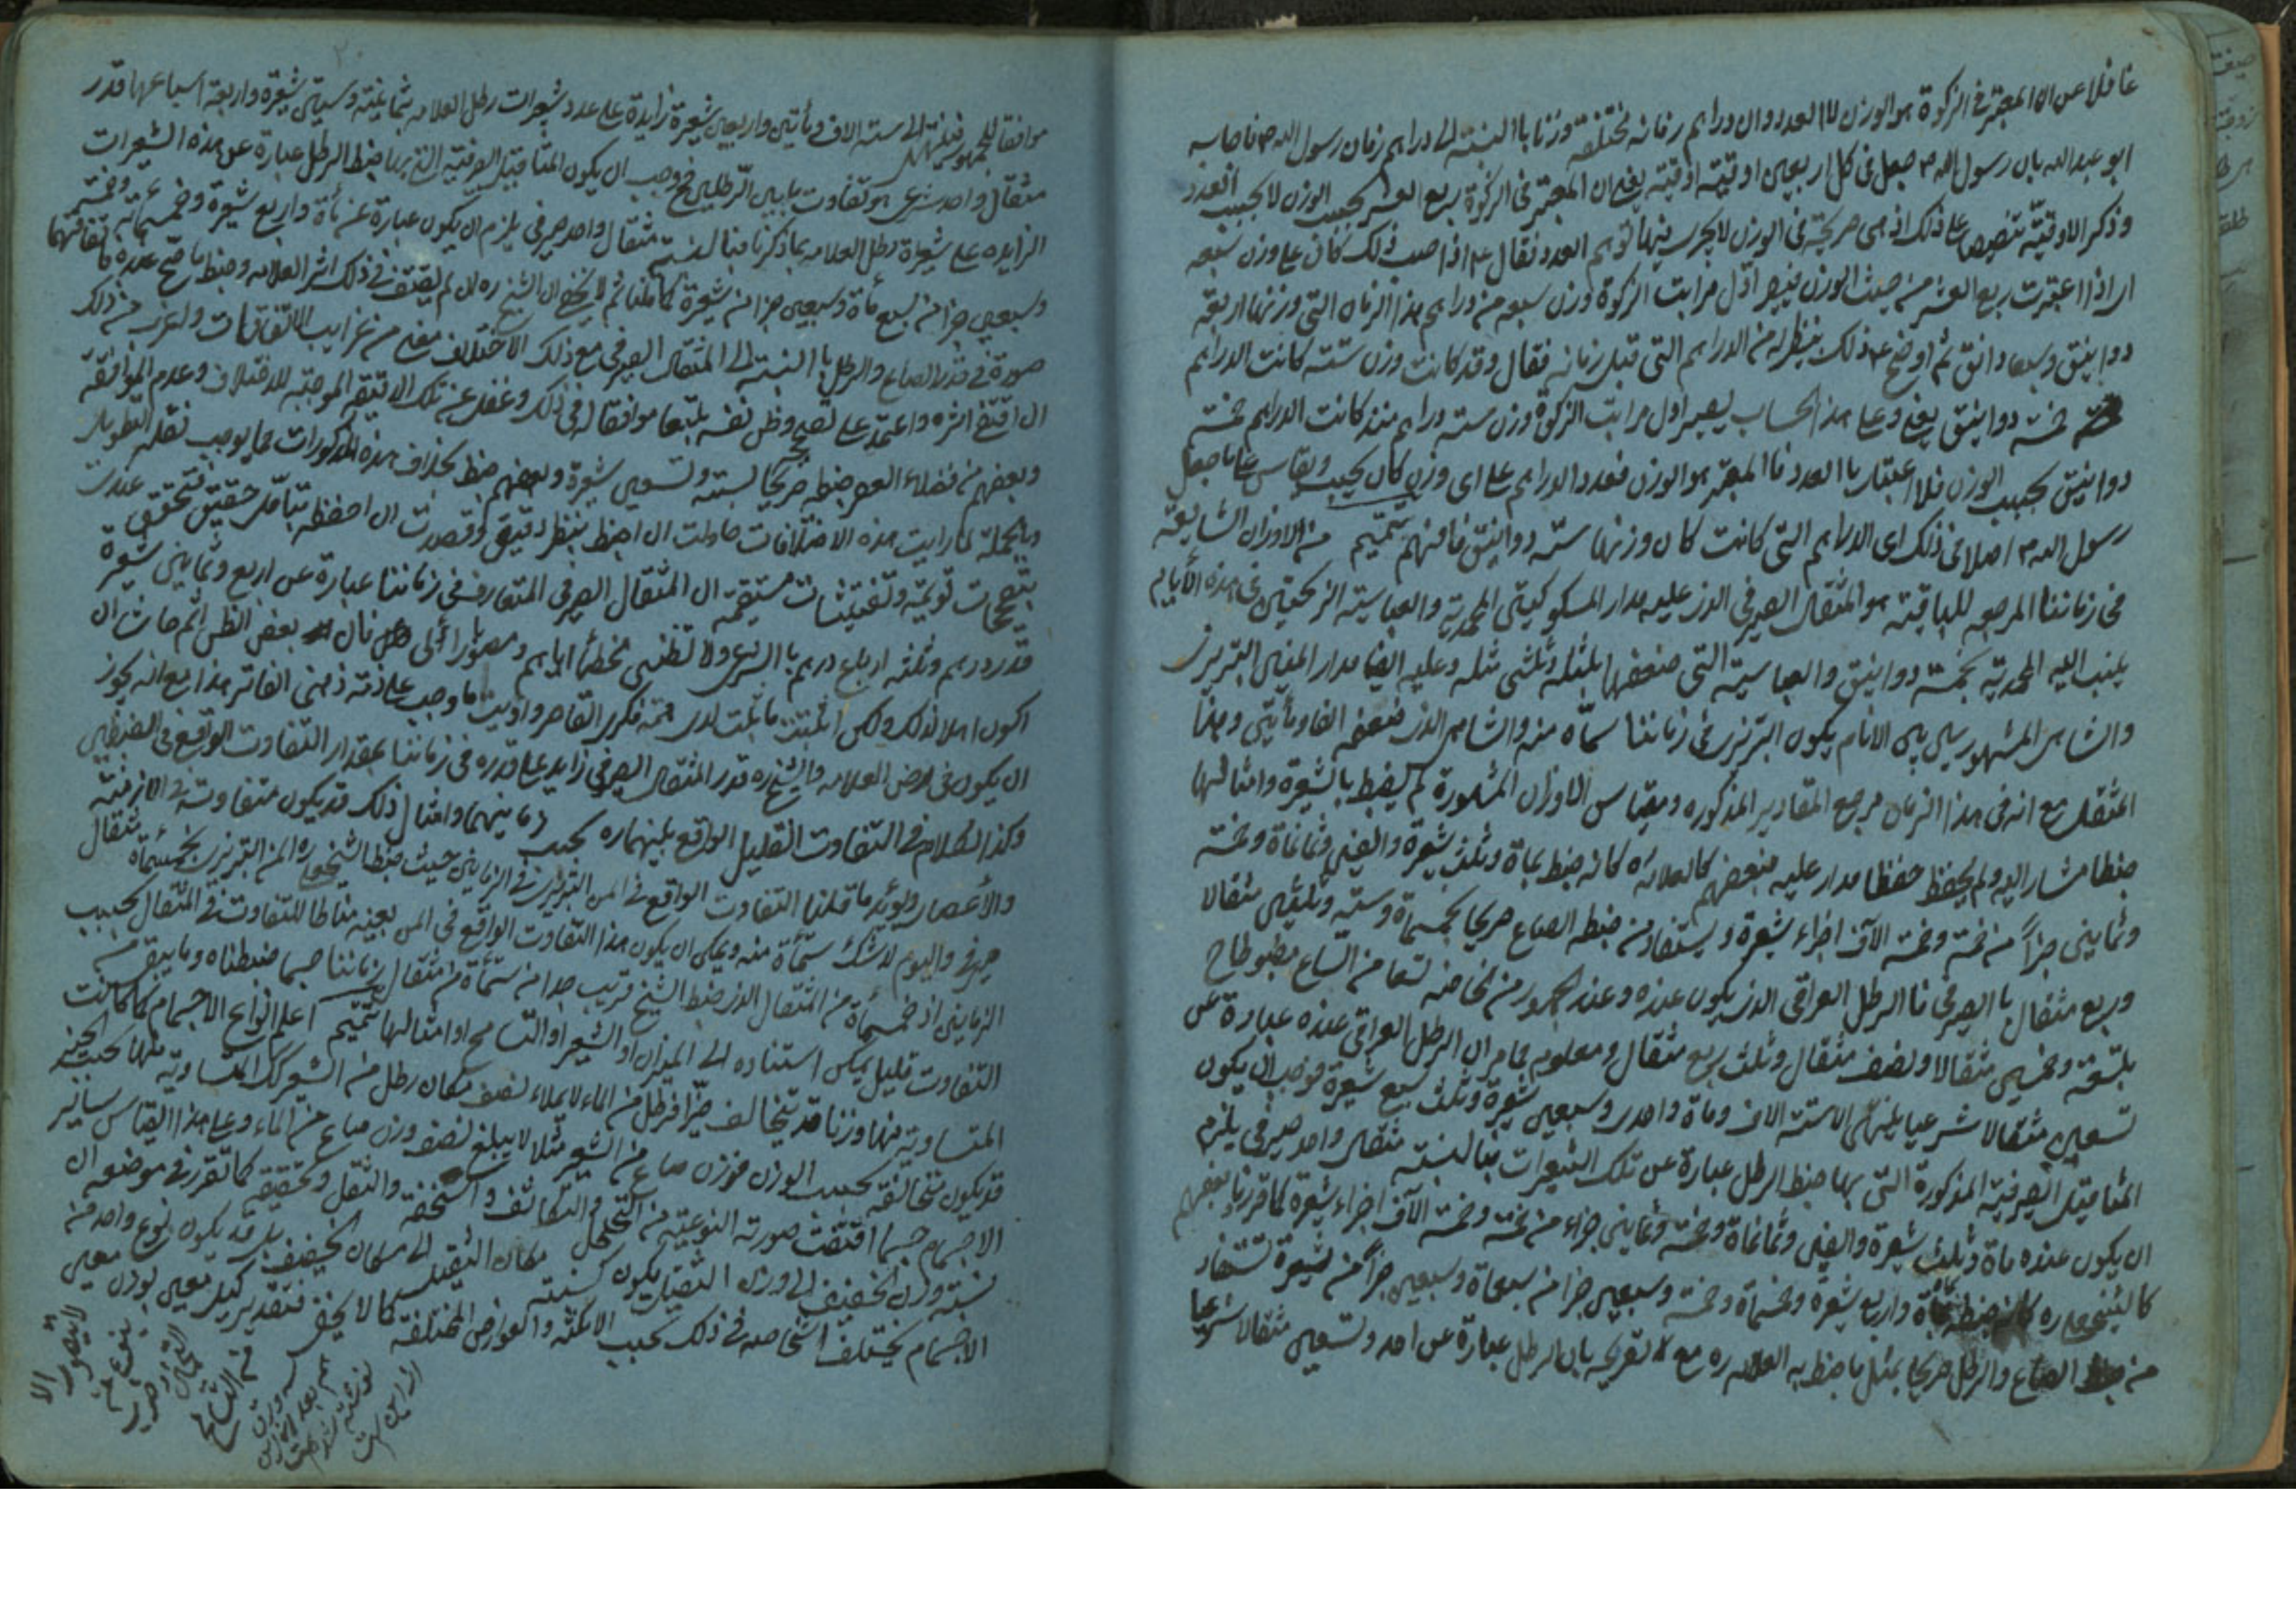 غافلا عن ان المعتبر فى الزكوة هو الوزن لا العدد وان دراهم زمانه مختلفة وزنا بالنسبة الى دراهم زمان رسول الله ص فاجابه
ابو عبد الله بان رسول الله ص جعل فى كل اربعين اوقية اوقية يعنى ان المعتبر فى الزكوة ربع العشر بحسب الوزن لا بحسب العدد
وذكر الاوقية تنصيص على ذلك اذ هى صريحة فى الوزن لا يجرى فيها توهم العدد فقال ع اذا حسبت ذلك كان على وزن سبعه
اى اذا اعتبرت ربع العشر من حيث الوزن يصير اول مراتب الزكوة وزن سبعه من دراهم هذا الزمان التى وزنها اربعة
دوانيق وسبعا دانق ثم اوضح ع ذلك بنظيره من الدراهم التى قبل زمانه فقال وقد كانت وزن ستة كانت الدراهم
خمسة دوانيق يعنى وعلى هذا الحساب يصير اول مراتب الزكوة وزن ستة دراهم منذ كانت الدراهم خمسة
دوانيق بحسب الوزن فلا اعتبار بالعدد فالمعتبر هو الوزن فعدد الدراهم على اى وزن كان يحسب ويقاس على ما جعل
رسول الله ص اصلا فى ذلك اى الدراهم التى كانت كان وزنها ستة دوانيق فافهم تتميم من الاوزان الشايعة
فى زماننا المرجع للباقية هو المثقال الصيرفى الذى عليه مدار المسكوكيتى المحمدية والعباسية الزنجيتين فى هذه الأيام
ينسب اليه المحمدية بخمسة دوانيق والعباسية التى ضعفها بمثله وثلثى مثله وعليه ايضا مدار المن التبريزى
والشاهى المشهورين بين الانام يكون التبريزى فى زماننا ستمأة منه والشاهى الذى ضعفه الفا ومأتين وهذا
المثقال مع انه فى هذا الزمان مرجع المقادير المذكوره ومقياس الاوزان المشهورة لم يضبط بالشعيرة وامثالها
ضبطا مشار اليه ولم يحفظ حفظا مدار عليه فبعضهم كالعلامه ره كانه ضبط بمأة وثلث شعيرة والفين وثمانمأة وخمسة
وثمانين جزأ من خمسة وخمسة الآف اجزاء شعيرة ويستفاد من ضبطه الصاع صريحا بخمسمأة وستة وثلثين مثقالا
وربع مثقال بالصيرفى فالرطل العراقى الذى يكون عنده وعند الجمهور تسعا من الصاع
بتسعة وخمسين مثقالا ونصف مثقال وثلث ربع مثقال ومعلوم مما مر ان الرطل العراقى عنده عبارة عن
تسعين مثقالا شرعيا ينتهى الى ستة الاف ومأة واحدى وسبعين شعيرة وثلث سبع شعيرة فوجب ان يكون
المثاقيل الصيرفية المذكورة التى بها ضبط الرطل عبارة عن تلك الشعيرات فبالنسبة مثقال واحد صيرفى يلزم
ان يكون عنده مأة وثلث شعيرة والفين وثمانمأة وخمسة وثمانين جزاء من خمسة وخمسة الآف اجزاء شعيرة كما قررنا وبعضهم
كالشيخ ره كانه ضبط بمأة واربع شعيرة وخمسمأة وخمسة وسبعين جزأ من سبعمأة وسبعين جزأ من شعيرة تستفاد
من ضبط الصاع والرطل صريحا بمثل ما ضبط به العلامه ره مع تصريحه بان الرطل عبارة عن احد وتسعين مثقالا شرعيا
موافقا للجمهور فينتهى الى ستة الاف ومأتين واربعين شعيرة زايدة على عدد شعيرات رطل العلامه بثمانية وستين شعيرة واربعة اسباعها قدر
مثقال واحد شرعى هو تفاوت ما بين الرطلين فوجب ان يكون المثاقيل الصيرفية التى بها ضبط الرطل عبارة عن هذه الشعيرات
الزايده على شعيرة رطل العلامه بما ذكرنا فبالنسبة مثقال واحد صيرفى يلزم ان يكون عبارة عن مأة واربع شعيرة وخمسمأة وخمسة
وسبعين جزأ من سبع مأة وسبعين جزأ من شعيرة كما قلنا ثم لا يخفى ان الشيخ ره ان لم يقتف فى ذلك اثر العلامه وضبط ما صح عنده فاتفاقهما
صورة فى قدر الصاع والرطل بالنسبة الى المثقال الصيرفى مع ذلك الاختلاف معنى من غرايب الاتفاقات واغرب من ذلك
ان اقتفى اثره واعتمد على تصحيحه وظن نفسه متبعا موافقا له فى ذلك وغفل عن تلك الدقيقة الموجبة للاختلاف وعدم الموافقة
وبعضهم من فضلاء العصر ضبطه صريحا بستة وتسعين شعيرة وبعضهم ضبط بخلاف هذه المذكورات مما يوجب نقله التطويل
وبالجملة لما رايت هذه الاختلافات حاولت ان اضبط بنظر دقيق وقصدت ان احفظه بتأمل حقيق فتحقق عندى
بتصحيحات قويمة وتفتيشات مستقيمه ان المثقال الصيرفى المتعارف فى زماننا عبارة عن اربع وثمانين شعيرة
قدر درهم وثلثة ارباع درهم بالشرعى ولا تظننى مخطأ اياهم ومصوبا رأيى فان بعض الظن اثم حاشا ان
اكون اهلا لذلك ولكن اثبت ما ثبت لدى فكرى القاصر واديت ما وجب على ذمة ذهنى الفاتر هذا مع انه يجوز
ان يكون فى ارض العلامه والشيخ ره قدر المثقال الصيرفى زايد على قدره فى زماننا بمقدار التفاوت الواقع فى الضبطين
وكذا الكلام فى التفاوت القليل الواقع بينهما ره بحسب زمانيهما وامثال ذلك قد يكون متفاوتة فى الازمنة
والأعصار ويؤيد ما قلنا التفاوت الواقع فى المن التبريزى فى الزمانين حيث ضبط الشيخ ره المن التبريزى بخمسمأة مثقال
صيرفى واليوم لا شك ستمأة منه ويمكن ان يكون هذا التفاوت الواقع فى المن بعينه مناطا للتفاوت فى المثقال بحسب
الزمانين اذ خمسمأة من المثقال الذى ضبط الشيخ قريب جدا من ستمأة من مثقال زماننا حسبما ضبطناه وما يبقى من
التفاوت قليل يمكن استناده الى الميزان او الشعير او التسامح او امثالها تتميم اعلم انواع الاجسام كما كانت
المتساوية منها وزنا قد يتخالف حيزا فرطل من الماء لا يملاء نصف مكان رطل من الشعير كذلك المتساوية منها بحسب الحيز
قد يكون متخالفة بحسب الوزن فوزن صاع من الشعير مثلا لا يبلغ نصف وزن صاع من الماء وعلى هذا القياس ساير
الاجسام حسبما اقتضت صورته النوعية من التخلخل والتكاثف والخفة والثقل وتحقيقه كما تقرر فى موضعه ان
نسبة وزن الخفيف الى وزن الثقيل يكون كنسبة مكان الثقيل الى مكان الخفيف بل قد يكون نوع واحد من
الاجسام يختلف اشخاصه فى ذلك بحسب الامكنة والعوارض المختلفة كما لا يخفى فتقدير كيل معين بوزن معين
لا يتصور الا